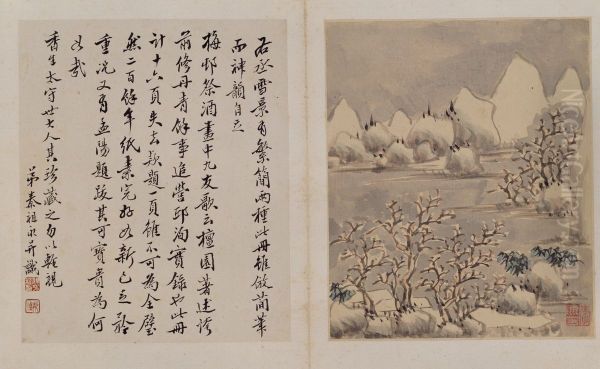 右丞雪景有繁簡兩種此冊雖倣簡筆
而神韻自足
梅邨祭酒畫中九友歌云檀園著述誇
前修丹青餘事追營邱洵實錄也此冊
計十六頁失去款題一頁雖不可為全璧
然二百餘年紙素完好如新已足珍
重況又有孟陽題跋其可寶貴為何
如哉
香生太守世大人其珍藏之勿以輕視
弟秦祖永并識